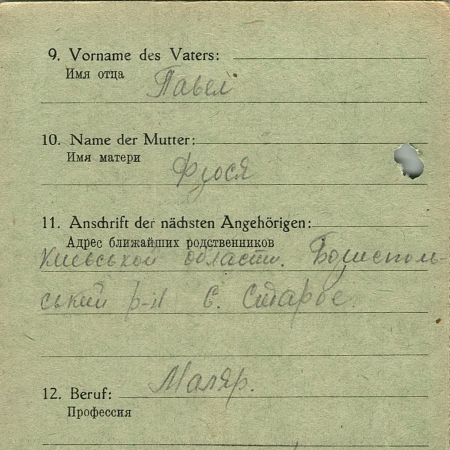 9. Vorname des Vaters:
Имя отца
Павел
10. Name der Mutter:
Имя матери
Фрося
11. Anschrift der nächsten Angehörigen:
Адрес ближайших родственников
Киевськой области. Бориспол-
ський р-н С. Старое.
12. Beruf:
Маляр.
Профессия